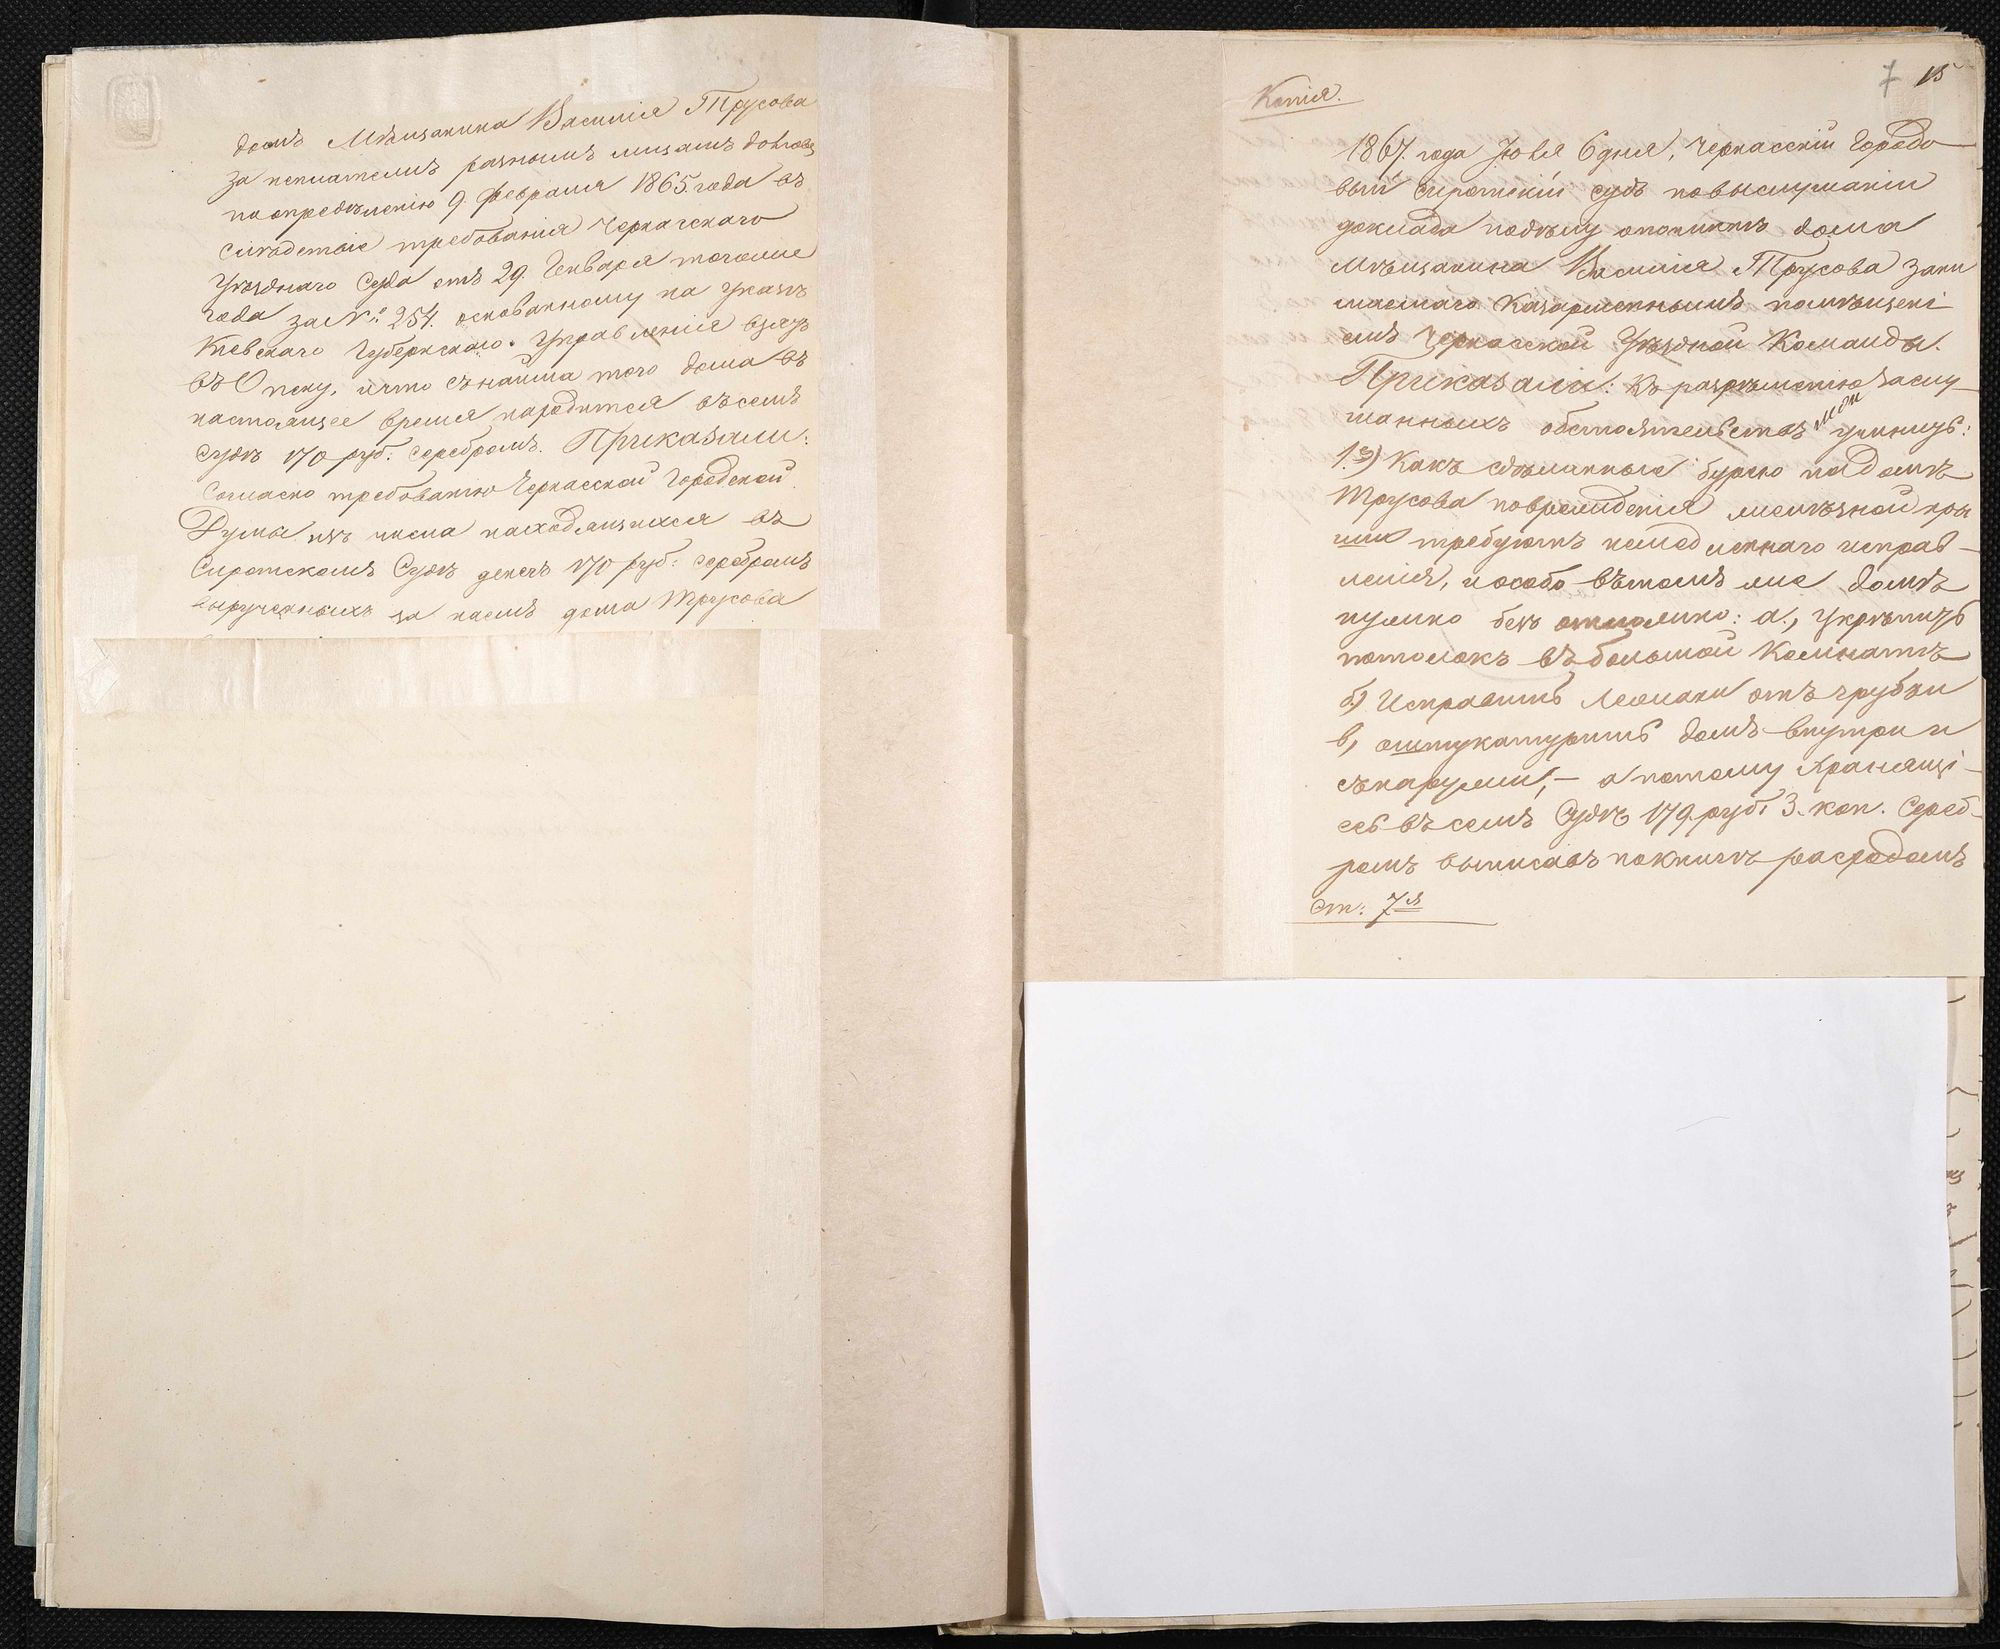 домъ Мѣщанина Василія Трусова
за неплатежъ разнымъ лицамъ долговъ
по опредѣленію 9 февраля 1865 года въ
слѣдствіе требованія Черкасскаго
Уѣзднаго Суда отъ 29 Генваря тогоже
года за № 254. основанному на указѣ
Кіевскаго Губернскаго Управленія взятъ
въ Опеку, и что съ найма того дома въ
настоящее время находится въ семъ
судѣ 170 руб: серебромъ. Приказали:
Согласно требованію Черкасской Городской
Думы изъ числа находящихся въ
Сиротскомъ Судѣ денегъ 170 руб: серебромъ
вырученныхъ за наемъ дома Трусова
7 15
Копія.
1867. года Іюля 6 дня, Черкасскій Городо
вый сиротскій судъ по выслушаніи
доклада по дѣлу о починкѣ дома
Мѣщанина Василія Трусова зани
маемаго Казарменнымъ помѣщені
емъ Черкасской Уѣздной Команды.
Приказали: Къ разрѣшенію заслу
шанныхъ обстоятельствъ учинить:
1.е) Какъ сдѣланные бурею на домѣ
Трусова поврежденія желѣзной кры
ши требуютъ немедленнаго исправ
ленія, и особо въ томъ же домѣ
нужно безъ отложно: а., укрѣпить
потолокъ въ большой Комнатѣ
б) Исправить Лежаки отъ трубки
в, оштукатурить домъ внутри и
снаружи, – а потому хранящі
есь въ семъ Судѣ 179 руб: 3. коп. Сереб
ромъ выписавъ по книгѣ расходомъ
Ст: 7я